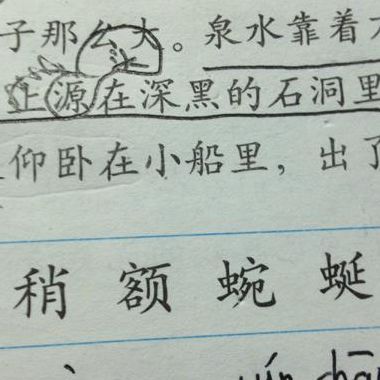 子那么大。泉水靠着
上源在深黑的石洞里
仰卧在小船里，出了
稍 额 蜿 蜒
yín chā